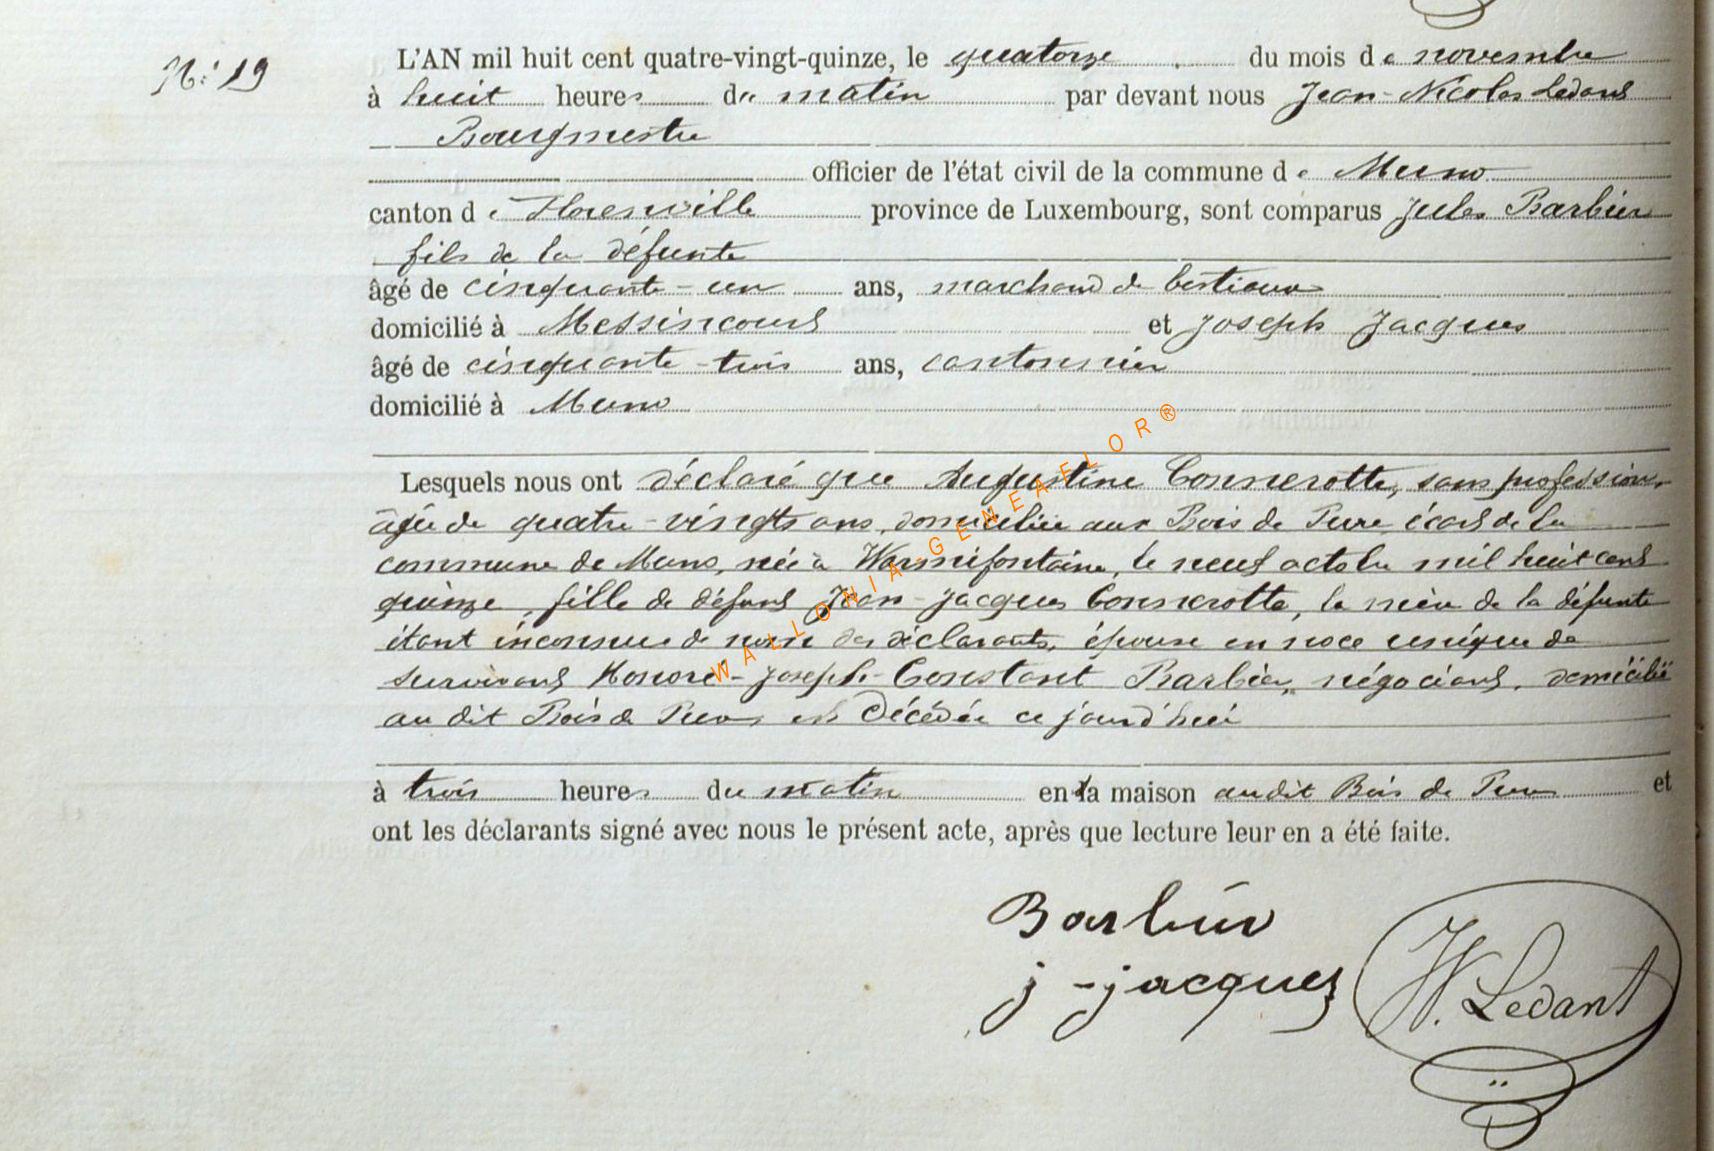 N.° 19
L'AN mil huit cent quatre-vingt-quinze, le quatorze du mois de novembre
à huit heures du matin par devant nous Jean-Nicolas Ledant
Bourgmestre
officier de l'état civil de la commune de Muno
canton de Florenville province de Luxembourg, sont comparus Jules Barbier
fils de la défunte
âgé de cinquante-un ans, marchand de bestiaux
domicilié à Messincourt et Joseph Jacques
âgé de cinquante-trois ans, cantonnier
domicilié à Muno
Lesquels nous ont déclaré que Augustine Connerotte, sans profession,
âgée de quatre-vingts ans, domiciliée aux Bois de Pure écart de la
commune de Muno, née à Warmifontaine, le neuf octobre mil huit cent
quinze, fille de défunt Jean-Jacques Connerotte, la mère de la défunte
étant inconnue de nom des déclarants, épouse en noce unique de
survivant Honoré-Joseph-Constant Barbier, négociant, domicilié
au dit Bois de Pure, est décédée ce jourd'hui
à trois heures du matin en la maison audit Bois de Pure et
ont les déclarants signé avec nous le présent acte, après que lecture leur en a été faite.
Barbier
J-Jacques
N. Ledant
WALLONIA-GENEAFLOR®